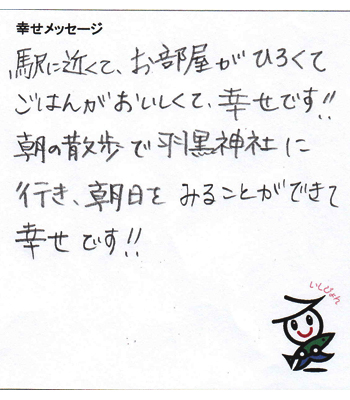 幸せメッセージ
駅に近くて、お部屋がひろくて
ごはんがおいしくて、幸せです!!
朝の散歩で羽黒神社に
行き、朝日をみることができて
幸せです!!
いしぴょん